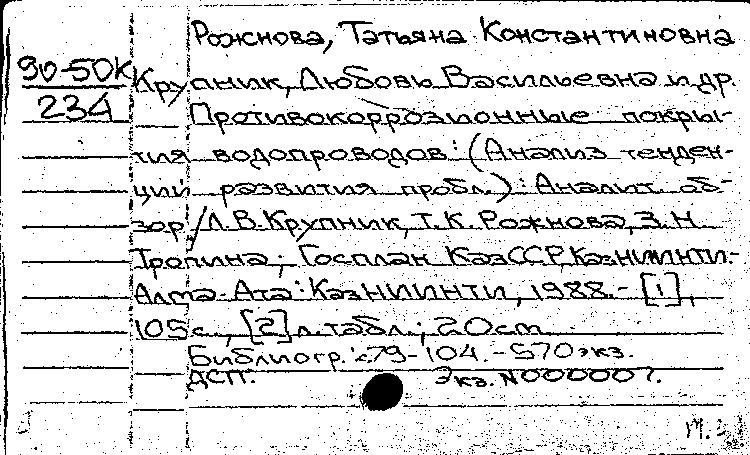 Рожнова, Татьяна Константиновна
90-50К
234
Крупник, Любовь Васильевна и др.
Противокоррозионные покры-
тия водопроводов: (Анализ тенден-
ций развития пробл.): Аналит. об-
зор / Л.В.Крупник, Т.К. Рожнова, З.Н.
Тропина; Госплан КазССР, КазНИИНТИ.-
Алма-Ата: КазНИИНТИ, 1988.- [1],
105 с., [2] л. табл.; 20 см.
Библиогр.: с.79-104. - 570 экз.
ДСП. Экз. N000007.